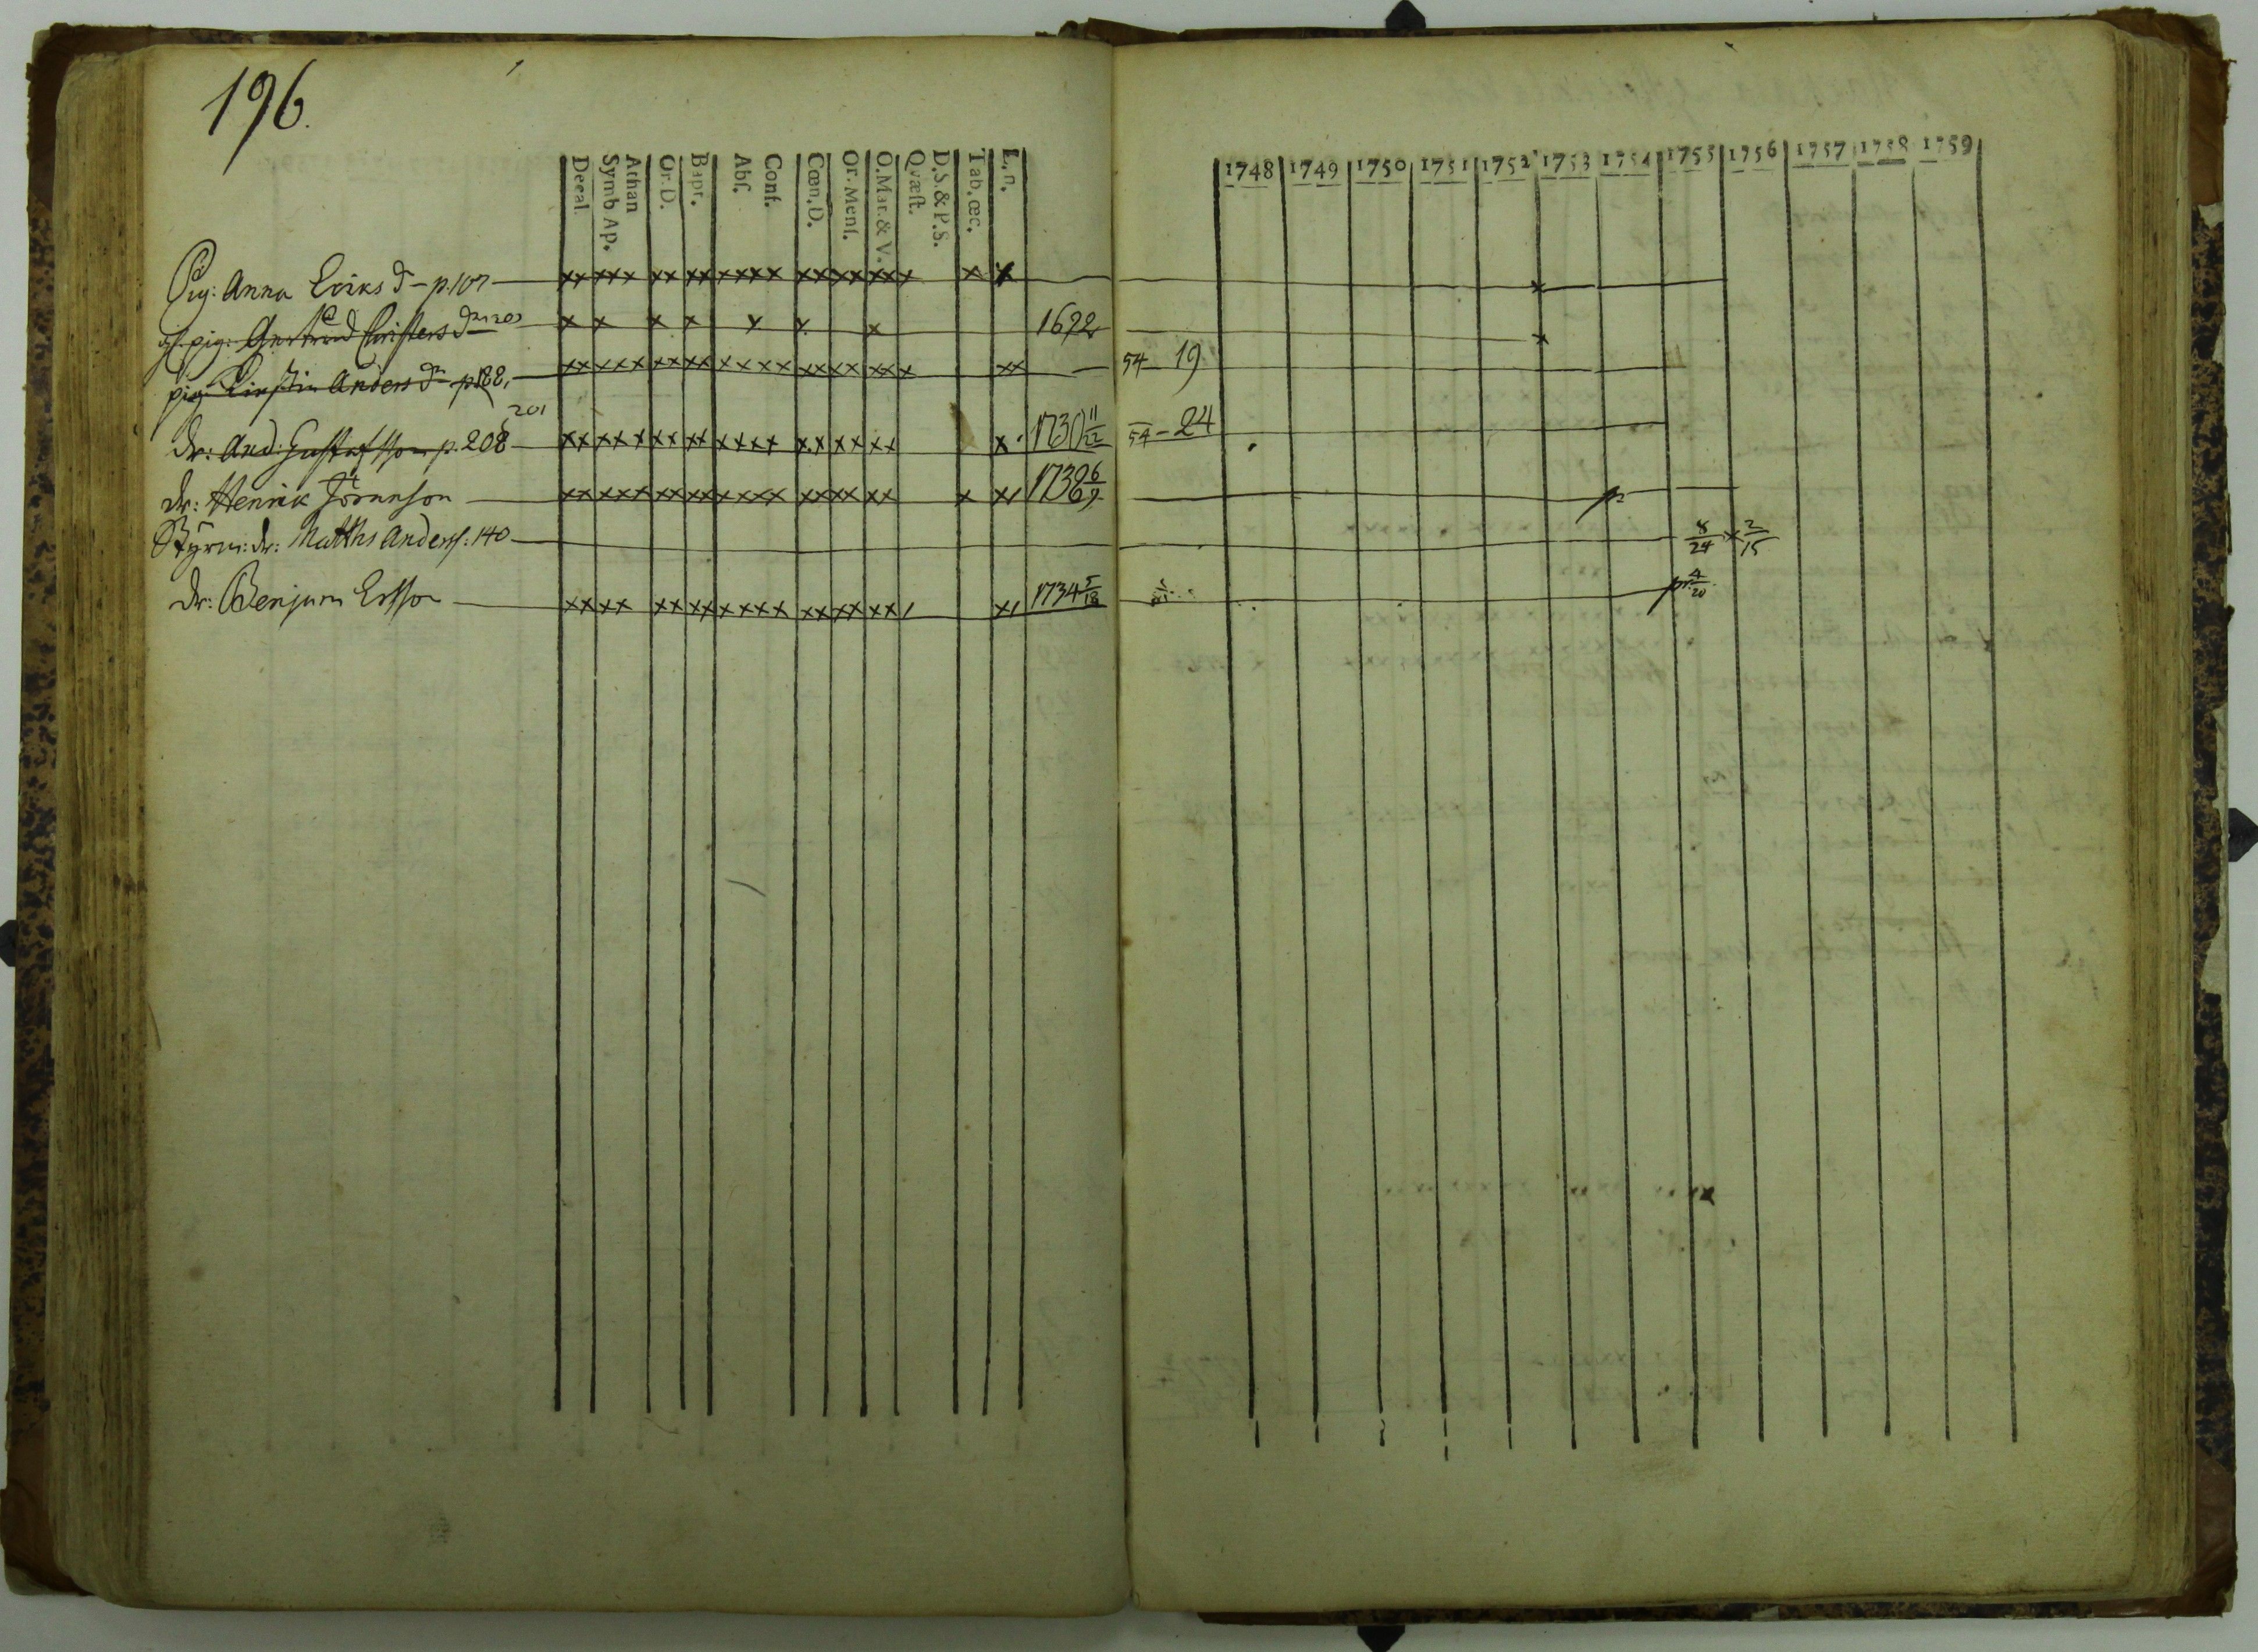 196.
Decal.
Symb Ap.
Athan
Or. D.
Bapt.
Abs.
Conf.
Cœn. D.
Or. Mens.
O. Mar. & V.
Qvæst.
D. S. & P. S.
Tab. œc.
L. n.
1748 1749 1750 1751 1752 1753 1754 1755 1756 1757 1758 1759
Pig: Anna Eriks dr - p. 107 xx xxx xx xx xxxx xx xx xxx x x x
pig: Gertrud Christers dr x x x x x x x 1692 x
pig: Kirstin Anders dr p 188, xx xxx xx xx xxxx xx xx xxx xx 54 - 19
201
dr: And: Gustafsson p. 208 xx xxx xx xx xxxx xx xx xx x 1730 11/22 54 - 24
dr: Henrik Jöransson xx xxx xx xx xxxx xx xx xx x x 1738 6/9
Styrm: dr: Matths Anderss: 140 8/24 x 2/15
dr: Benjam Ersson xx xx xx xx xxxx xx xx xx x 1734 5/18 pr. 4/20